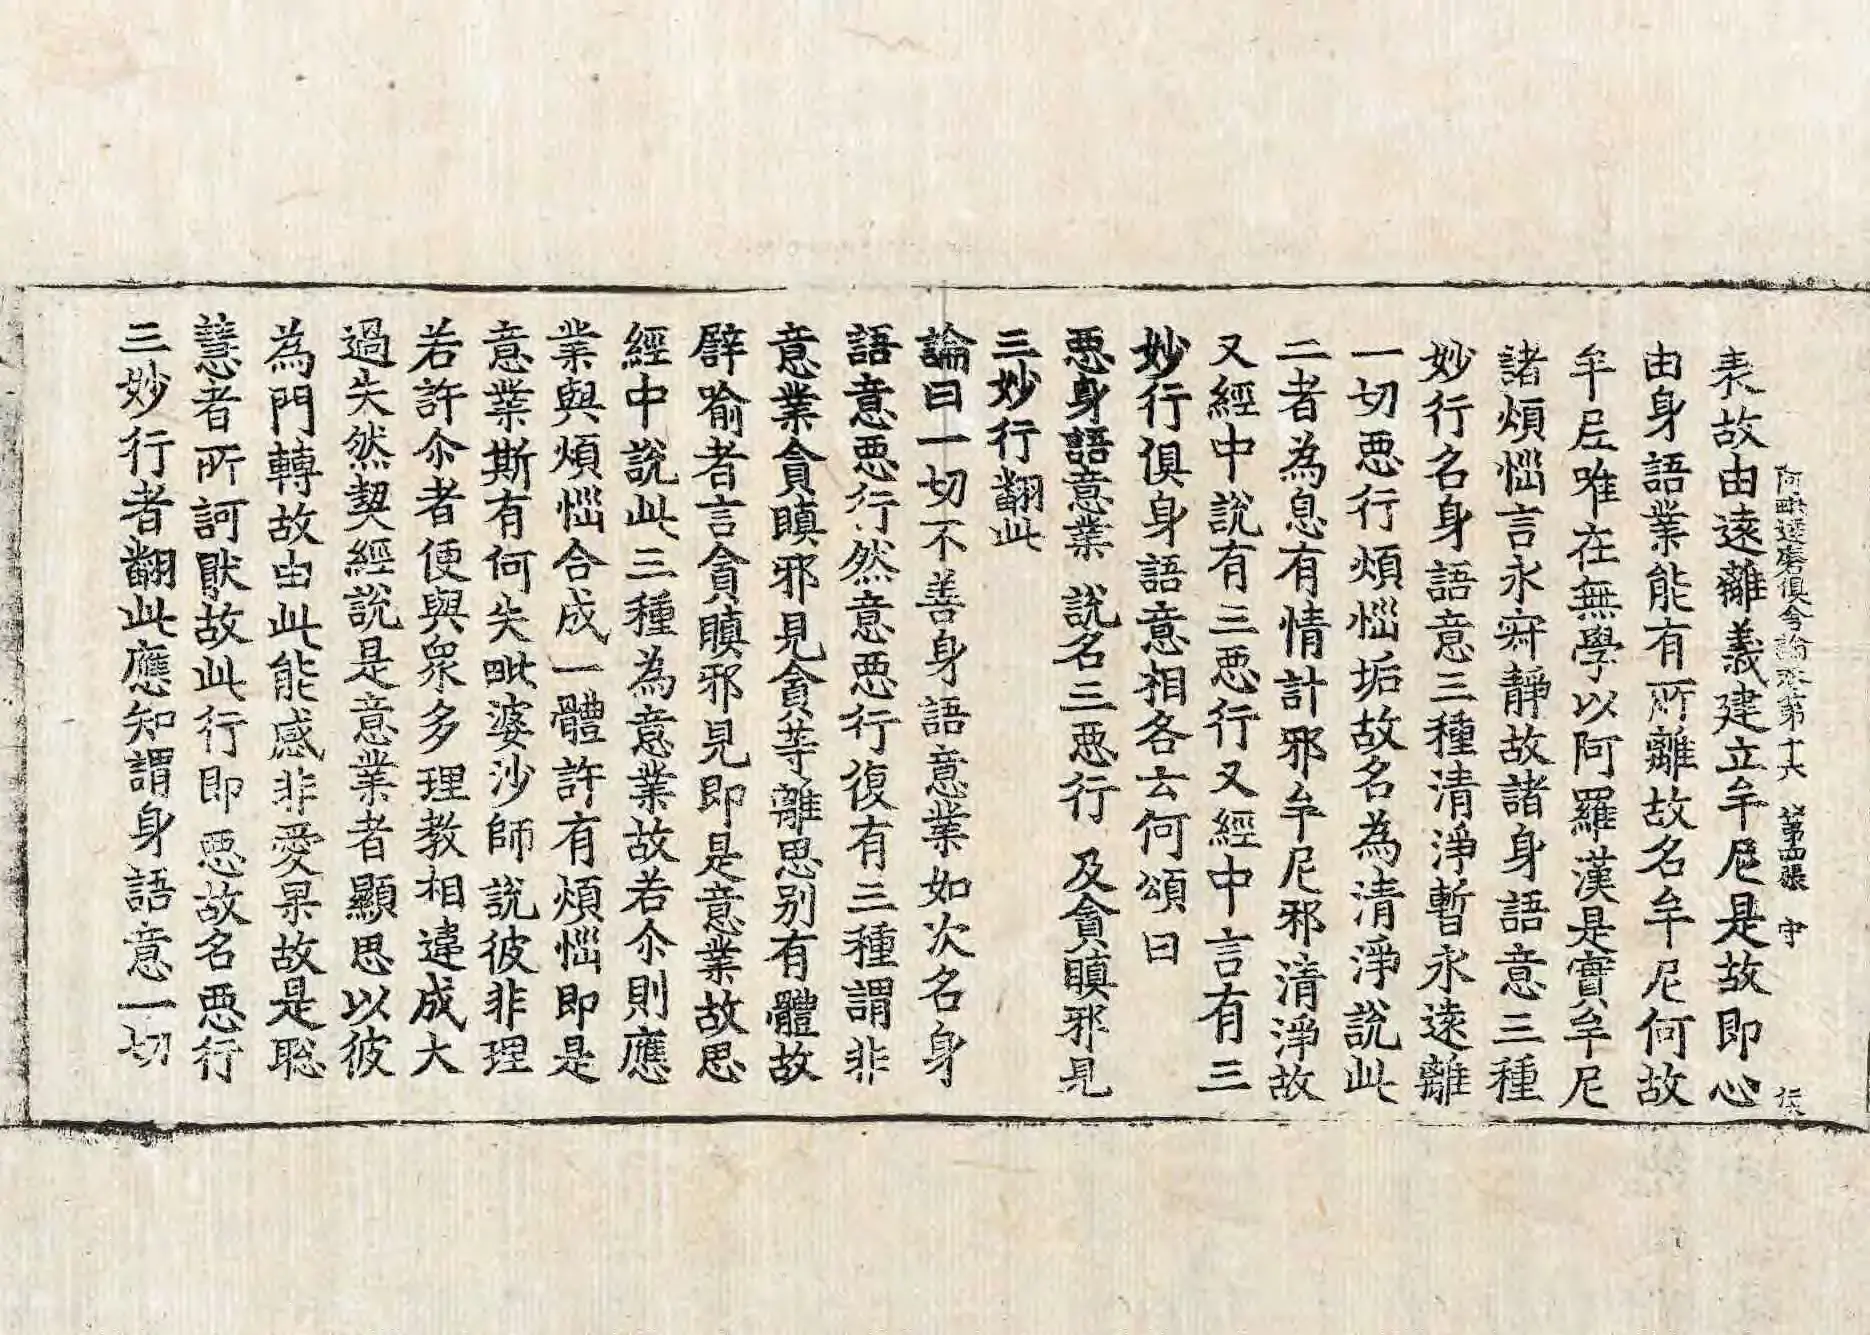 阿毗達磨俱舍論卷第十六 第四張 守
表故由遠離義建立牟尼是故即心
由身語業能有所離故名牟尼何故
牟尼唯在無學以阿羅漢是實牟尼
諸煩惱言永寂靜故諸身語意三種
妙行名身語意三種清淨暫永遠離
一切惡行煩惱垢故名為清淨說此
二者為息有情計邪牟尼邪清淨故
又經中說有三惡行又經中言有三
妙行俱身語意相各云何頌曰
惡身語意業 說名三惡行 及貪瞋邪見
三妙行翻此
論曰一切不善身語意業如次名身
語意惡行然意惡行復有三種謂非
意業貪瞋邪見貪等離思別有體故
譬喻者言貪瞋邪見即是意業故思
經中說此三種為意業故若尒則應
業與煩惱合成一體許有煩惱即是
意業斯有何失毗婆沙師說彼非理
若許尒者便與眾多理教相違成大
過失然契經說是意業者顯思以彼
為門轉故由此能感非愛果故是聡
慧者所訶猒故此行即惡故名惡行
三妙行者翻此應知謂身語意一切